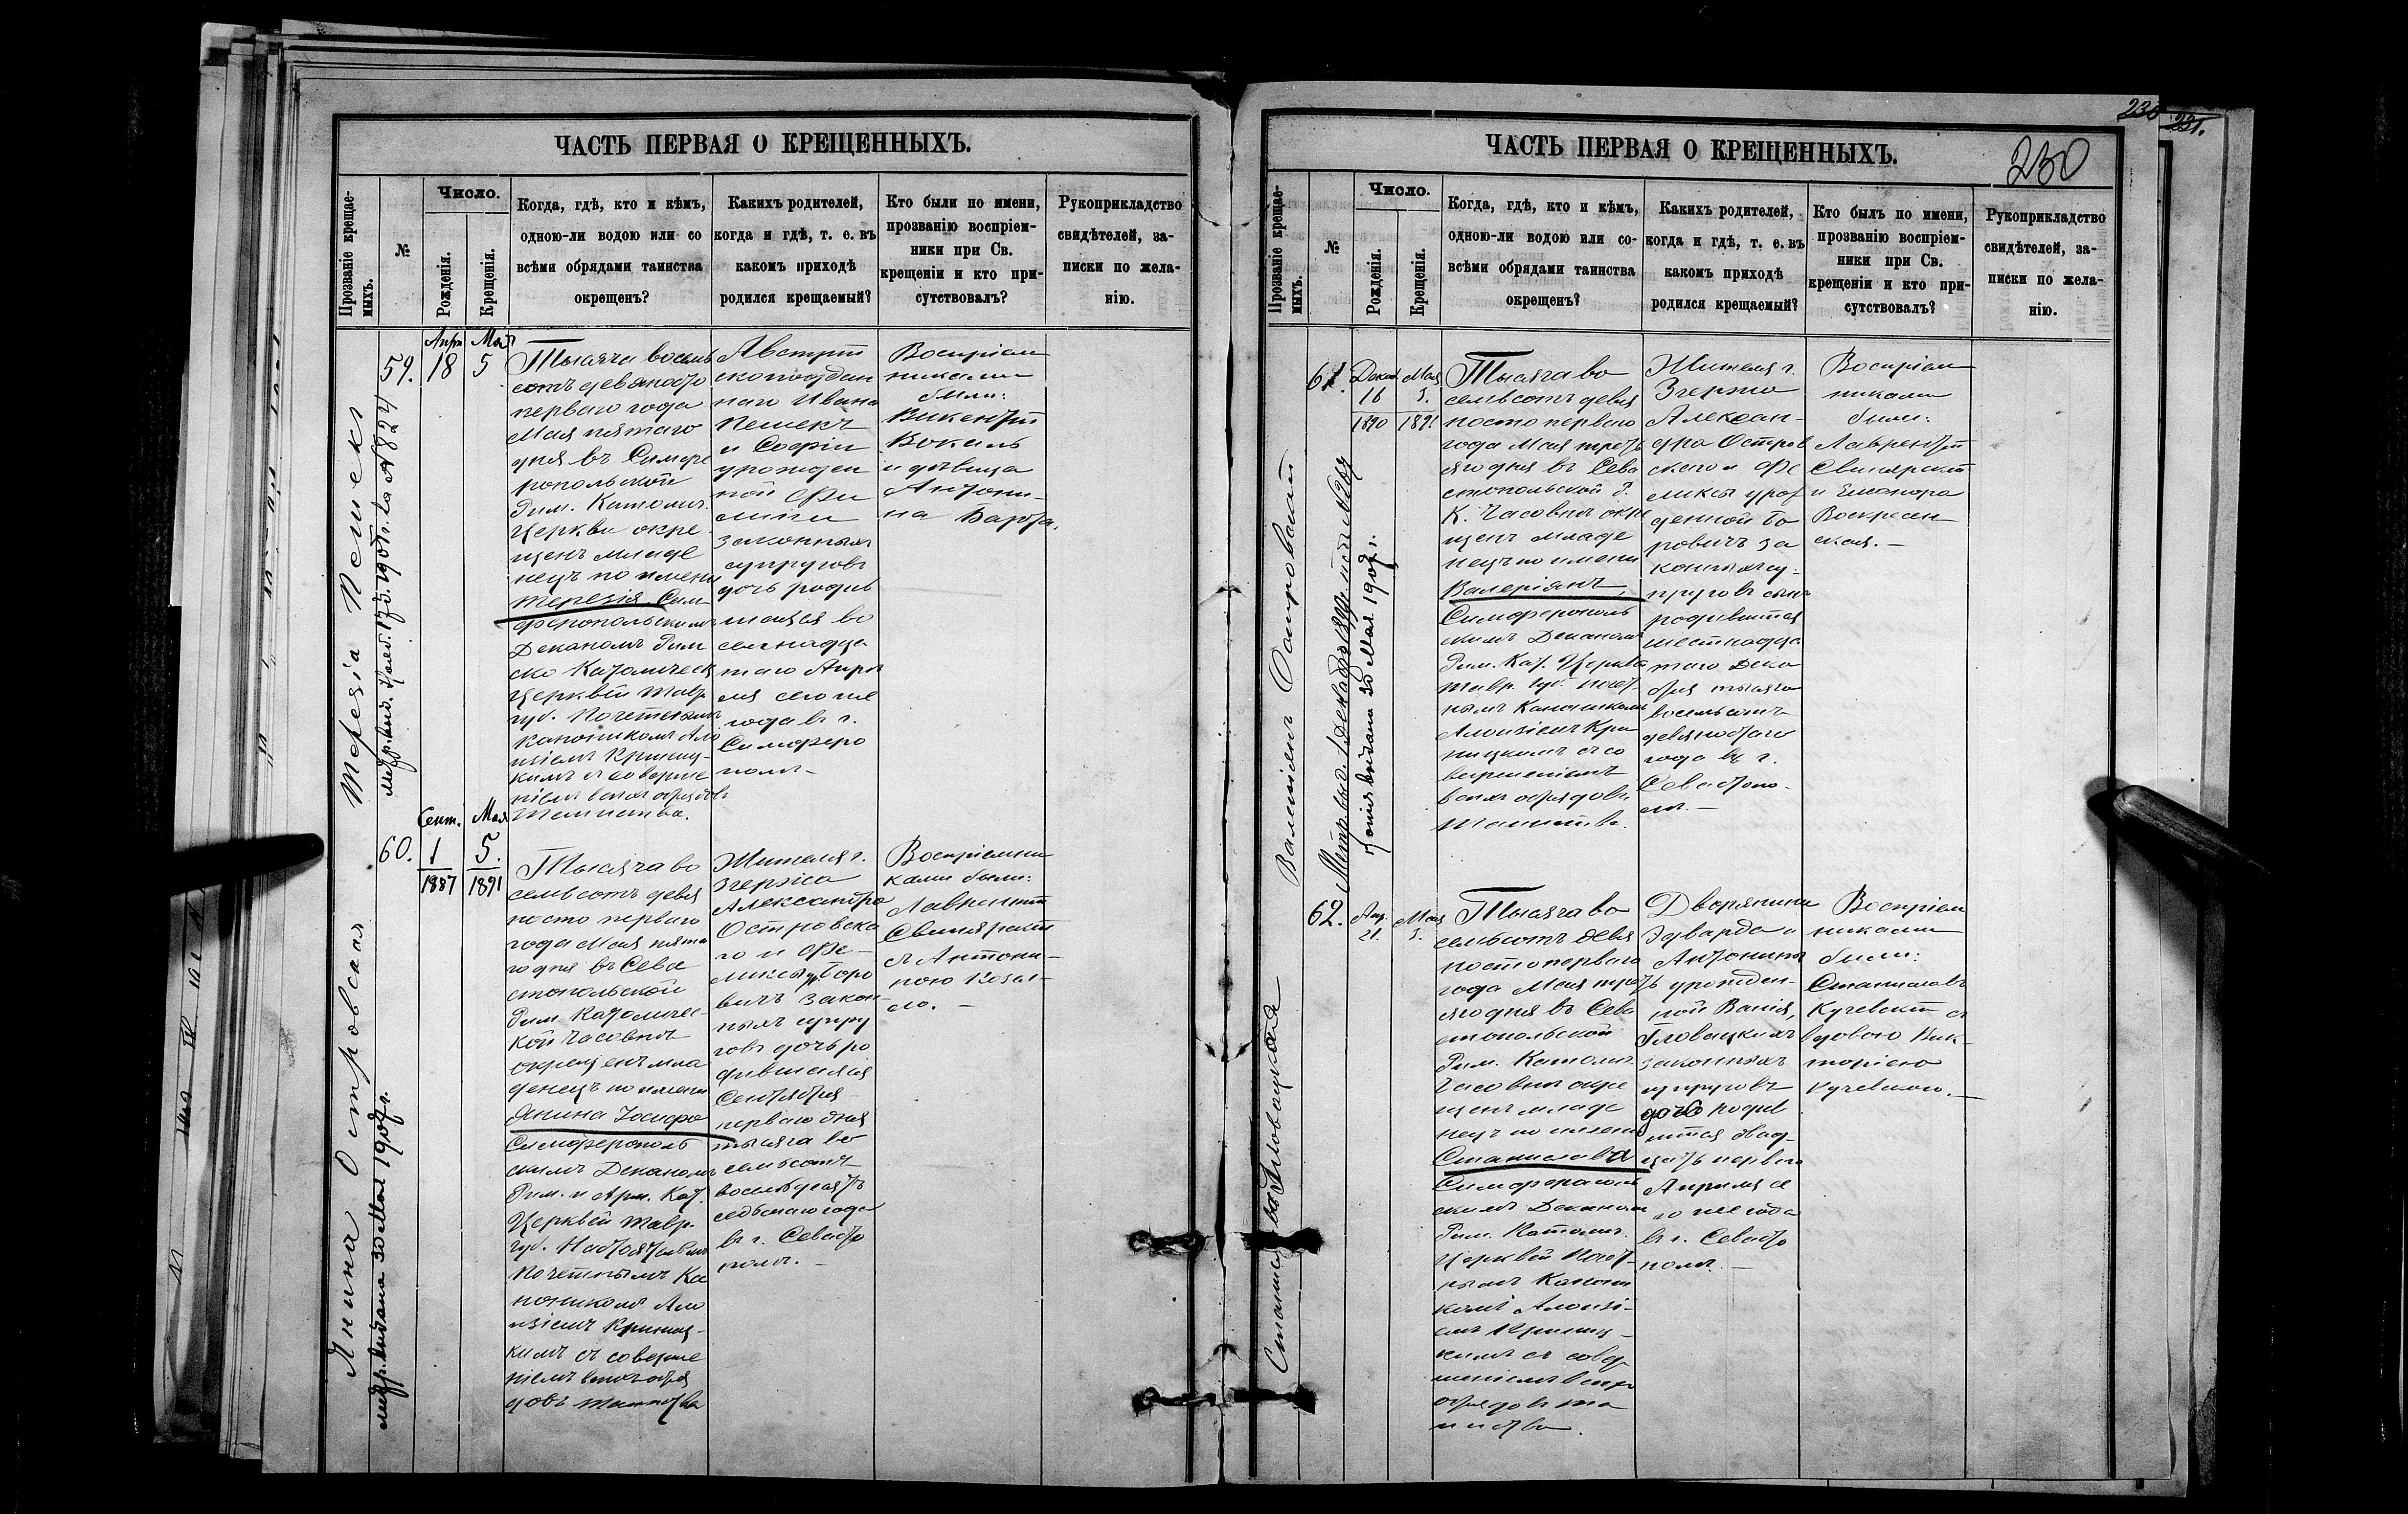 ЧАСТЬ ПЕРВАЯ О КРЕЩЕННЫХЪ.
Прозваніе крещае-
мыхъ.
№
Число.
Рожденія.
Крещенія.
Когда, гдѣ, кто и кѣмъ,
одною-ли водою или со
всѣми обрядами таинства
окрещенъ?
Какихъ родителей,
когда и гдѣ, т. е. въ
какомъ приходѣ
родился крещаемый?
Кто были по имени,
прозванію воспріем-
ники при Св.
крещеніи и кто при-
сутствовалъ?
Рукоприкладство
свидѣтелей, за-
писки по жела-
нію.
Терезія Пешекъ
59.
Апрѣ
18
Мая
5
Тысяча восемь
сотъ девяносто
перваго года
Мая пятаго
дня въ Симфе
ропольской
Рим. Католич.
Церкви окре
щенъ младе
нецъ по имени
Терезія Сим
феропольскимъ
Деканомъ Рим
ско Католическ
Церквей Тавр.
губ. Почетнымъ
Каноникомъ Ало
изіемъ Криниц-
кимъ съ соверше
ніемъ всѣхъ обрядовъ
Таинства.
Австрій
скоподдан
наго Ивана
Пешекъ
и Софіи
урожден
ной
законныхъ
супруговъ
дочь родив
шаяся во
семнадца
таго Апрѣ
ля сего же
года въ г.
Симферо
полѣ.
Воспріем
никами
были:
Викентій
Вокаль
и дѣвица
Антони-
на
Янина Островская
метр. выдана 30 Мая 1907 г.
60.
Сент.
1
1887
Мая
5.
1891
Тысяча во
семьсотъ девя
носто перваго
года Мая пята
го дня въ Сева
стопольской
Рим. Католичес-
кой Часовнѣ
окрещенъ мла
денецъ по имени
Янина Іосифа
Симферополь
скимъ Деканомъ
Рим. и Арм. Кат.
Церквей Тавр.
губ. Настоятелемъ
Почетнымъ Ка
ноникомъ Ало
изіемъ Криниц-
кимъ съ соверше
ніемъ всѣхъ обря
довъ таинства
Жителя г.
Згержа
Александра
Островска
го и Фе-
ликсы ур. Боро
вичъ закон-
ныхъ супру
говъ дочь ро
дившаяся
Сентября
перваго дня
тысяча во
семьсотъ
восемьдесятъ
седьмаго года
въ г. Севасто
полѣ.
Воспріемни
ками были:
Лаврентій
Свинярскій
съ Антони-
ною
ЧАСТЬ ПЕРВАЯ О КРЕЩЕННЫХЪ.
230
231.
230
Прозваніе крещае-
мыхъ.
№
Число.
Рожденія.
Крещенія.
Когда, гдѣ, кто и кѣмъ,
одною-ли водою или со-
всѣми обрядами таинства
окрещенъ?
Какихъ родителей,
когда и гдѣ, т. е. въ
какомъ приходѣ
родился крещаемый?
Кто былъ по имени,
прозванію воспріем-
ники при Св.
крещеніи и кто при-
сутствовалъ?
Рукоприкладство
свидѣтелей, за-
писки по жела-
нію.
Островскій
выдана 30 Мая 1907 г.
61.
Декаб.
16
1890
Мая
5.
1891
Тысяча во
семьсотъ девя
носто перваго
года Мая
дня въ Сева
стопольской Р.
К. Часовнѣ окре
щенъ младе
нецъ по имени
Валеріянъ,
Симферополь
скимъ Деканомъ
Рим. Кат. Церквей
Тавр. губ. Почет-
нымъ Каноникомъ
Алоизіемъ Кри
ницкимъ съ со
вершеніемъ
всѣхъ обрядовъ
Таинства.
Жителя г.
Згержа
Алексан-
дра Остров
скаго и Фе
ликсы урож
денной Бо
ровичъ за
конныхъ су-
пруговъ сынъ
родившійся
шестнадца
таго Дека
бря тысяча
восемьсотъ
девяностаго
года въ г.
Севастопо-
лѣ.
Воспріем
никами
были:
Лаврентій
Свинярскій
и Елеонора
Воскресен
ская.
Станислава Гловацкая
62.
Апр.
21.
Мая
5.
Тысяча во
семьсотъ девя
носто перваго
года Мая
дня въ Сева
стопольской
Рим. Католич.
Часовнѣ окре
щенъ младе
нецъ по имени
Станислава
Симферополь
скимъ Деканомъ
Рим. Католич.
Церквей Почет-
нымъ Канони
комъ Алоизі-
емъ Криниц-
кимъ съ совер
шеніемъ всѣхъ
обрядовъ та
инства.
Дворянина
Эдуарда и
Антонины
урожден-
ной
Гловацкихъ
законныхъ
супруговъ
дочь родив
шаяся двад-
цать перваго
Апрѣля се
го же года
въ г. Севасто
полѣ.
Воспріем
никами
были:
Станиславъ
Кучевскій съ
вдовою Вик-
торіею
Кучевскою.